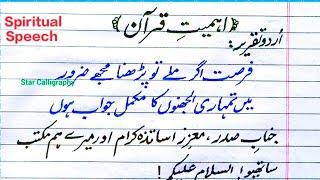 Spiritual Speech
﴿اہمیتِ قرآن﴾
اُردو تقریر:
فرصت اگر ملے تو پڑھنا مجھے ضرور
Star Calligraphy
میں تمہاری الجھنوں کا مکمل جواب ہوں
جنابِ صدر، معزز اساتذہ کرام اور میرے ہم مکتب
ساتھیو! السلام علیکم!